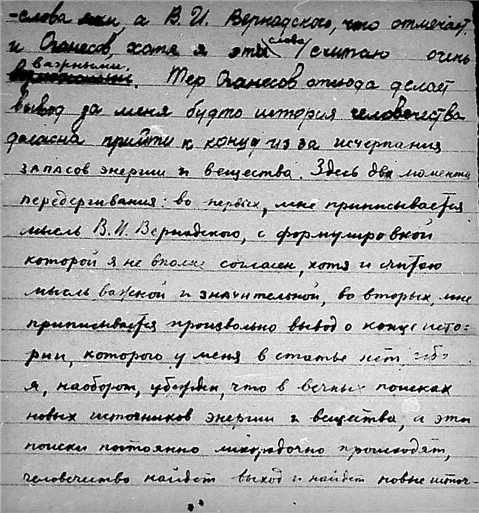 -слова мои, а В. И. Вернадского, что отмечает
и Оганесов, хотя я эти слова считаю очень
важными. Тер Оганесов отсюда делает
вывод за меня будто история человечества
должна прийти к концу из за исчерпания
запасов энергии и вещества. Здесь два момента
передергивания: во первых, мне приписывается
мысль В. И. Вернадского, с формулировкой
которой я не вполне согласен, хотя и считаю
мысль важной и значительной, во вторых, мне
приписывается произвольно вывод о конце исто-
рии, которого у меня в статье нет ибо
я, наоборот, убежден, что в вечных поисках
новых источников энергии и вещества, а эти
поиски постоянно лихорадочно происходят,
человечество найдет выход и найдет новые источ-